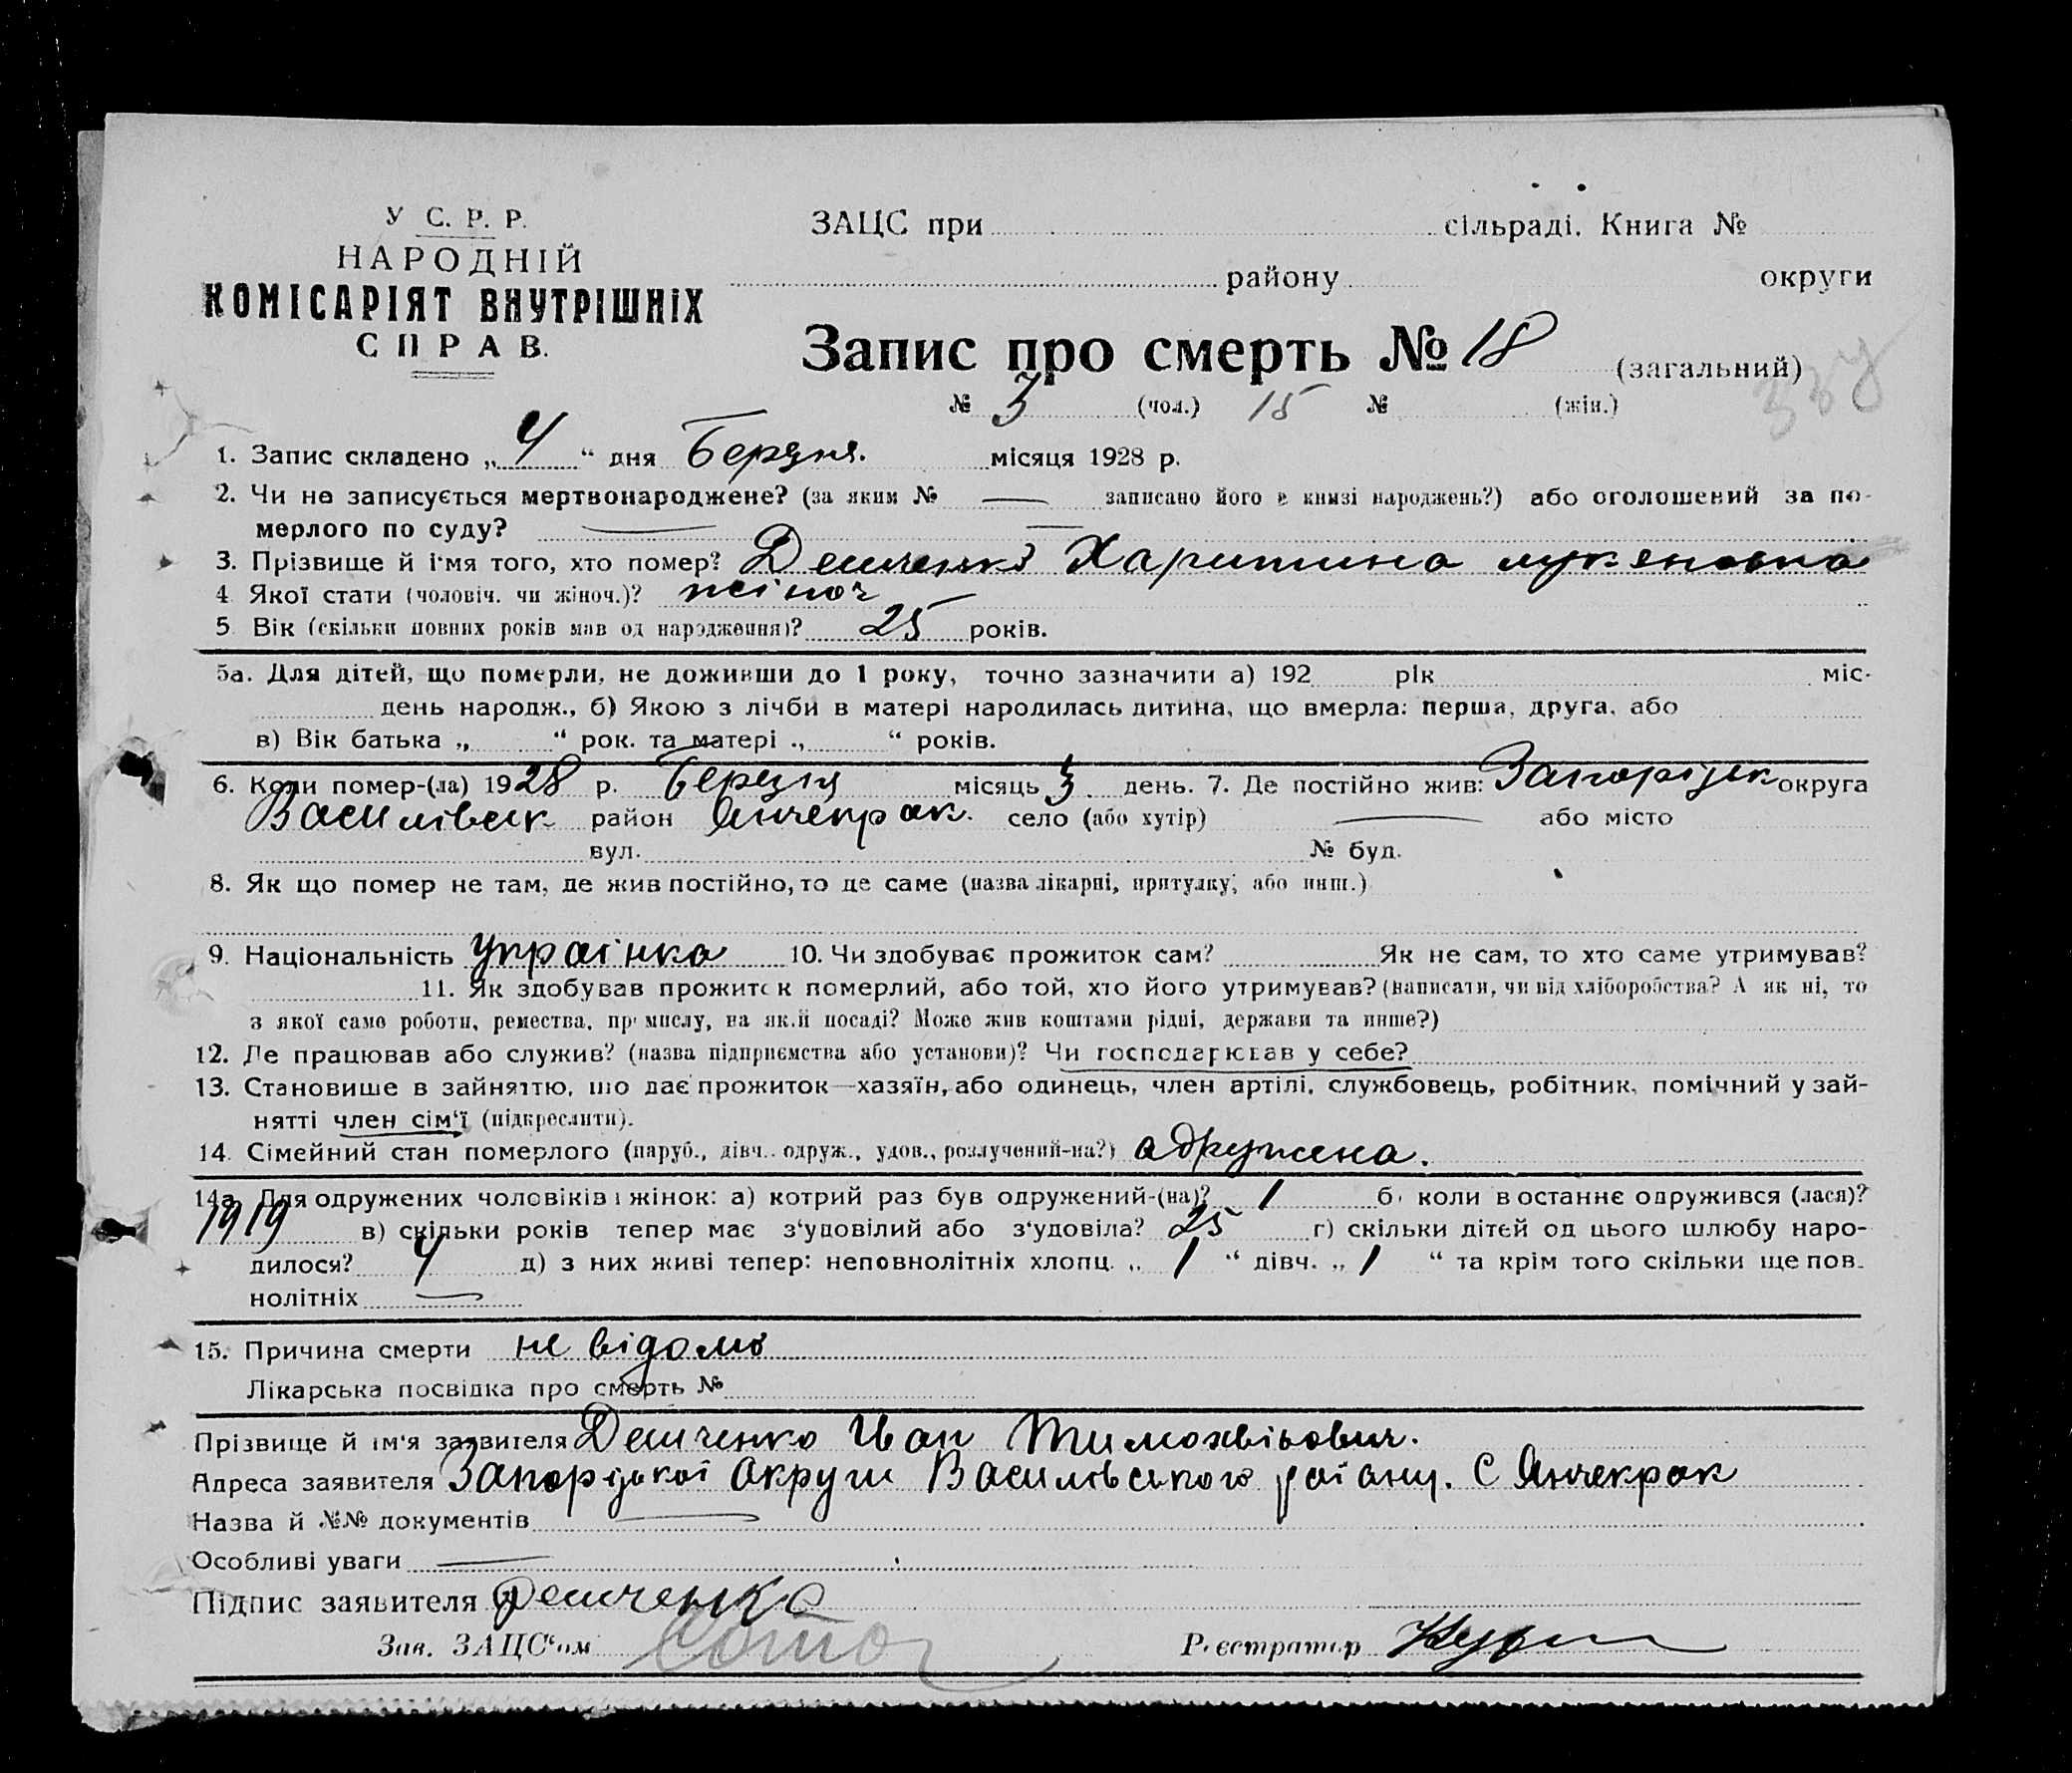 У С. Р. Р.
НАРОДНІЙ
КОМІСАРІЯТ ВНУТРІШНІХ
СПРАВ.
ЗАЦС при сільраді. Книга №
району округи
Запис про смерть № 18 (загальний)
№ 3 (чол.) 15 № (жін.)
1. Запис складено „ 4 “ дня Березня. місяця 1928 р.
2. Чи не записується мертвонароджене? (за яким № — записано його в книзі народжень?) або оголошений за по-
мерлого по суду? —
3. Прізвище й ім'я того, хто помер? Демченко Харитина
4 Якої стати (чоловіч. чи жіноч.)? жіноч
5 Вік (скільки повних років мав од народження)? 25 років.
5а. Для дітей, що померли, не доживши до 1 року, точно зазначити а) 192 рік міс.
день народж., б) Якою з лічби в матері народилась дитина, що вмерла: перша, друга, або
в) Вік батька „ “ рок. та матері „ “ років.
6. Коли помер-(ла) 1928 р. Березня місяць 3 день. 7. Де постійно жив: Запоріжск округа
Василівськ район Янчекрак. село (або хутір) — або місто
вул. № буд.
8. Як що помер не там, де жив постійно, то де саме (назва лікарні, притулку, або инш.)
9. Національність Українка 10. Чи здобуває прожиток сам? Як не сам, то хто саме утримував?
11. Як здобував прожиток померлий, або той, хто його утримував? (написати, чи від хліборобства? А як ні, то
з якої само роботи, ремества, промислу, на якій посаді? Може жив коштами рідні, держави та инше?)
12. Де працював або служив? (назва підприємства або установи)? Чи господарював у себе?
13. Становище в зайняттю, що дає прожиток—хазяїн, або одинець, член артілі, службовець, робітник, помічний у зай-
нятті член сім'ї (підкреслити).
14. Сімейний стан померлого (паруб., дівч. одруж., удов., розлучений-на?) одружена.
14а Для одружених чоловіків і жінок: а) котрий раз був одружений-(на)? 1 б) коли в останнє одружився (лася)?
1919 в) скільки років тепер має з'удовілий або з'удовіла? 25 г) скільки дітей од цього шлюбу наро-
дилося? 4 д) з них живі тепер: неповнолітніх хлопц. „ 1 “ дівч. „ 1 “ та крім того скільки ще пов-
нолітніх —
15. Причина смерти не відомо
Лікарська посвідка про смерть №
Прізвище й ім'я заявителя Демченко Іван Тимохвійович.
Адреса заявителя Запоріжської Округи Василівського раіону. С Янчекрак
Назва й №№ документів —
Особливі уваги —
Підпис заявителя Демченко
Зав. ЗАЦС'ом
Реєстратор